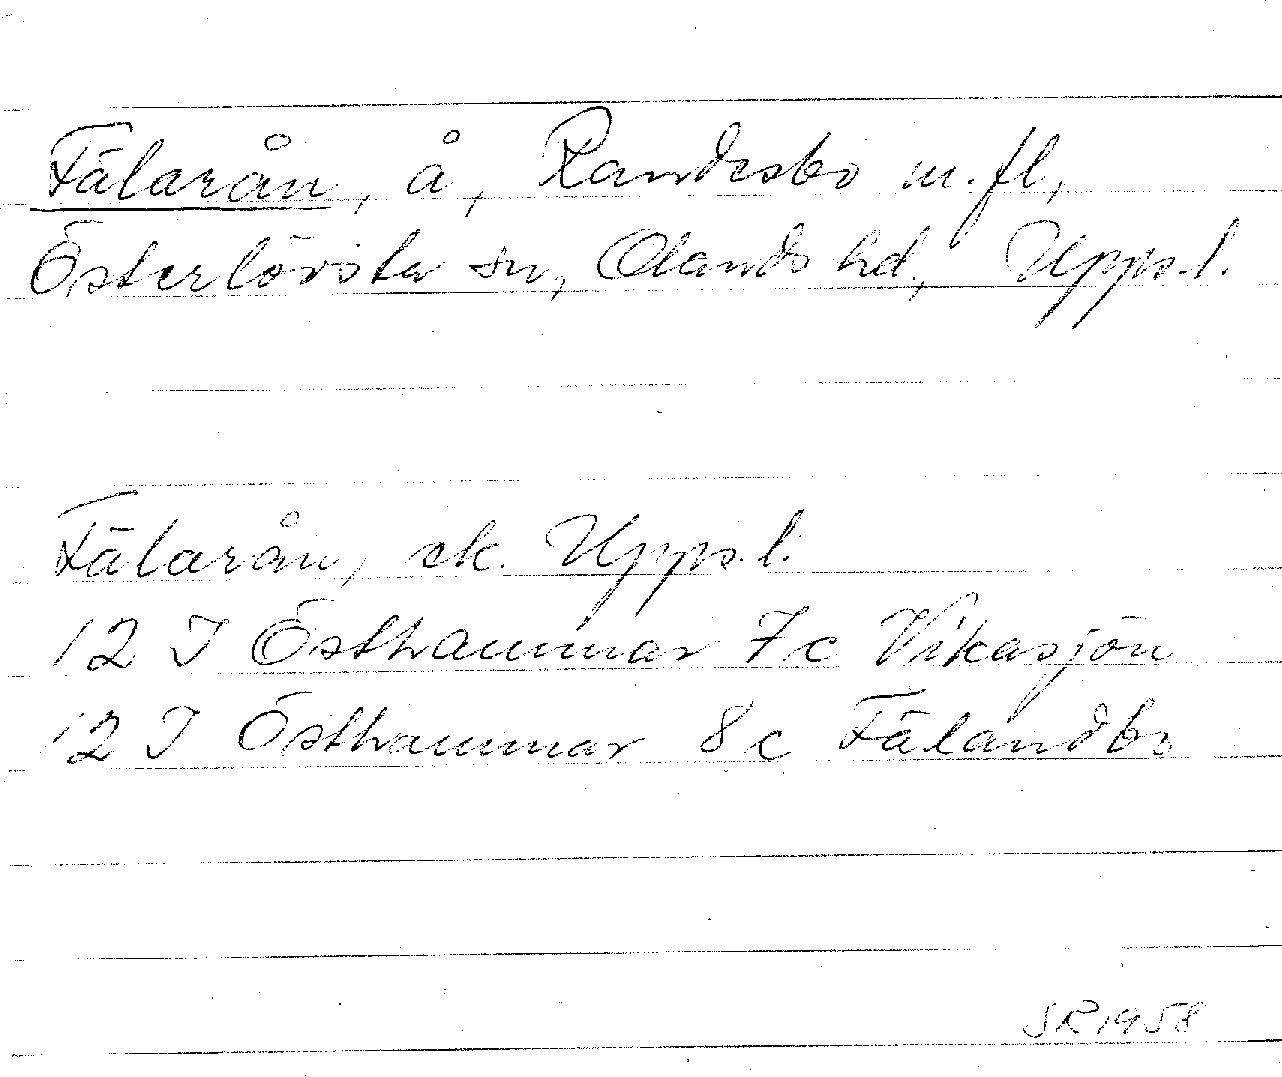 Fälarån, å, Randesbo m.fl,
Österlövsta sn, Olands hd, Uppsl.
Fälarån, ek. Uppsl.
12 I Östhammar 7c Vikasjön
12 I Östhammar 8c Fälandbo
SR 1958